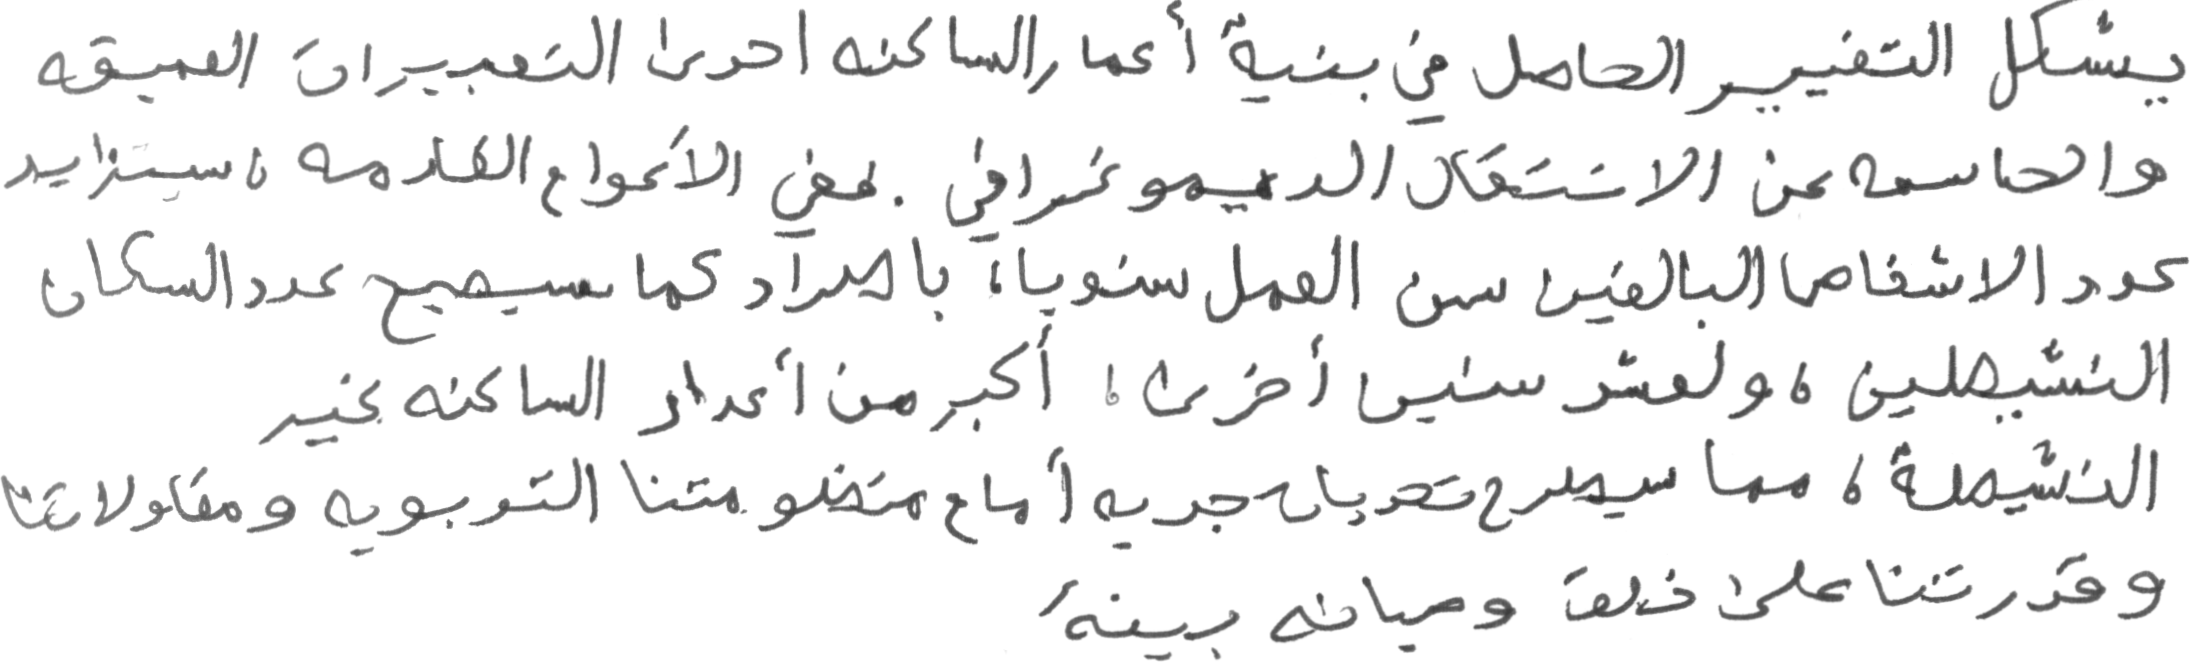 يشكل التغيير الحاصل في بنية أعمار الساكنه احدى التعبيرات العميقه
والحاسمه عن الانتقال الديموغرافي . ففي الأعوام القادمه ، سيتزايد
عدد الاشخاص البالغين سن العمل سنويا ، باطراد كما سيصبح عدد السكان
النشيطين ، ولعشر سنين أخرى ، أكبر من أعداد الساكنه غير
النشيطة ، مما سيطرح تحديات جديه أمام منظومتنا التربويه ومقاولاتنا
وقدرتنا على خلق وصيانه بيئة